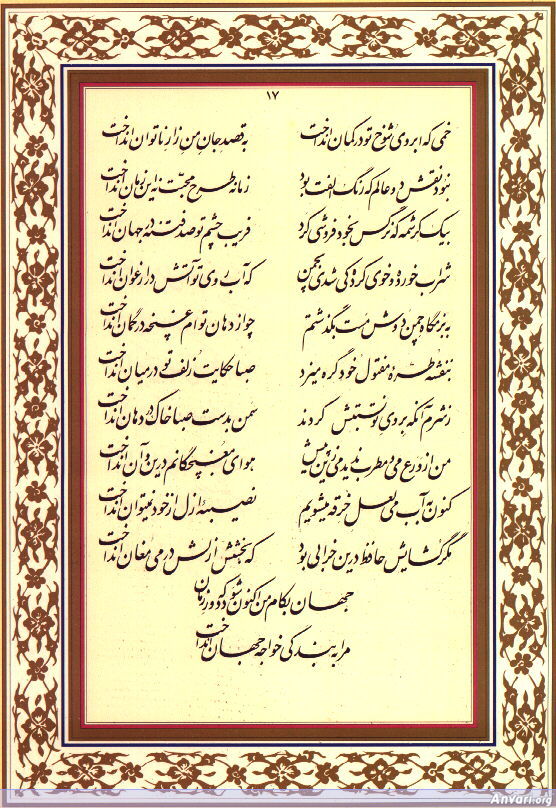 ۱۷
خمی که ابروی شوخ تو در کمان انداخت به قصد جان من زار ناتوان انداخت
نبود نقش دو عالم که رنگ الفت بود زمانه طرح محبت نه این زمان انداخت
بیک کرشمه که نرگس بخود فروشی کرد فریب چشم تو صد فتنه در جهان انداخت
شراب خورده و خوی کرده کی شدی بچمن که آب روی تو آتش در ارغوان انداخت
به بزمگاه چمن دوش مست بگذشتم چو از دهان توام غنچه در گمان انداخت
بنفشه طرهٔ مفتول خود گره میزد صبا حکایت زلف تو در میان انداخت
ز شرم آنکه بروی تو نسبتش کردند سمن بدست صبا خاک در دهان انداخت
من از ورع می و مطرب ندیدمی زین پیش هوای مغبچگانم درین و آن انداخت
کنون به آب می لعل خرقه میشویم نصیبهٔ ازل از خود نمیتوان انداخت
مگر گشایش حافظ درین خرابی بود که بخشش ازلش در می مغان انداخت
جهان بکام من اکنون شود که دور زمان
مرا به بندگی خواجه جهان انداخت
Anvari.org